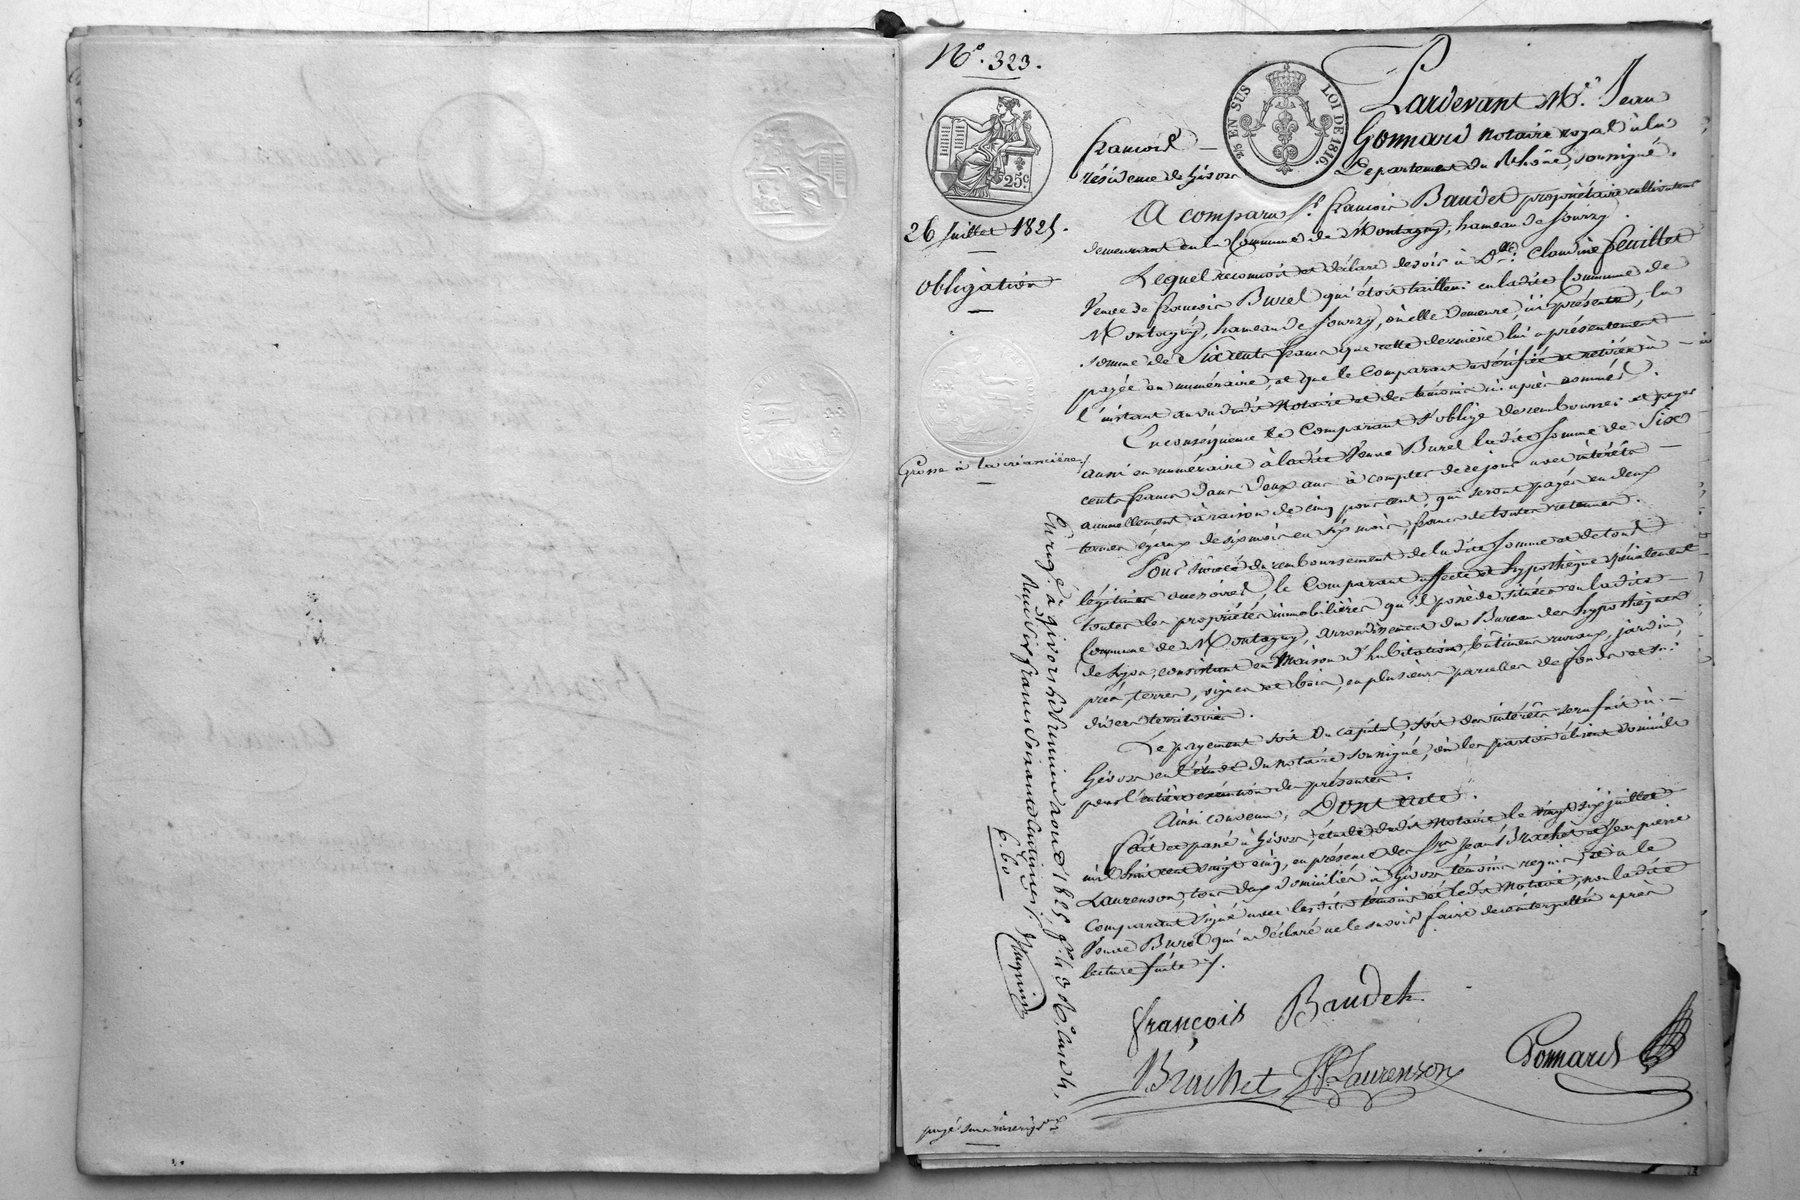 N.° 323.
25.c
2/5 EN SUS
LOI DE 1816.
26 Juillet 1825.
obligation
Grosse à la créancière /
Pardevant M.e Jean
François
Gonnard notaire royal à la
résidence de Givors
Département du Rhône, soussigné.
A comparu S.r François Baudet propriétaire cultivateur
demeurant en la Commune de Montagny, hameau de Sourzy.
Lequel reconnoit et déclare devoir à D.lle Claudine feuillet
Veuve de françois Burel qui étoit tailleur en ladite Commune de
Montagny, hameau de Sourzy, où elle demeure, ici présente, la
somme de Six cents francs que cette dernière lui a présentement
payée en numéraire, et que le Comparant a vérifiée et retirée à
l'instant au vu dudit Notaire et des témoins ci-après nommés.
En conséquence le Comparant s'oblige de rembourser et payer
aussi en numéraire à ladite Veuve Burel ladite somme de Six
cents francs dans deux ans à compter de ce jour avec intérêts
annuellement à raison de cinq pour cent, qui seront payés en deux
termes égaux de six mois en six mois, francs de toutes retenues.
Pour sûreté du remboursement de ladite somme et de tous
légitimes accessoires, le Comparant affecte et hypothèque spécialement
toutes les propriétés immobilières qu'il possède, situées en ladite
Commune de Montagny, arrondissement du Bureau des hypothèques
de Lyon, consistant en Maison d'habitation, bâtimens ruraux, jardin,
prés, terres, vignes et bois, en plusieurs parcelles de fonds et sur
divers territoires.
Le payement soit du capital, soit des intérêts sera fait à
Givors en l'étude du notaire soussigné, où les parties élisent domicile
pour l'entière exécution des présentes.
Ainsi convenu, Dont Acte.
Fait et passé à Givors, étude dudit Notaire le vingt six juillet
mil huit cent vingt cinq, en présence des S.rs Jean Brachet et Jean pierre
Laurenson, tous deux domiciliés à Givors témoins requis, et a le
Comparant signé avec lesdits témoins et ledit Notaire, non ladite
Veuve Burel qui a déclaré ne le savoir faire de ce interpellée après
lecture faite /.
françois Baudet
Brachet JP Laurenson Gonnard
Enreg.é à givors le premier aout 1825, f.o 43 R.o case 4,
Reçu six francs soixante centimes /.
6. 60